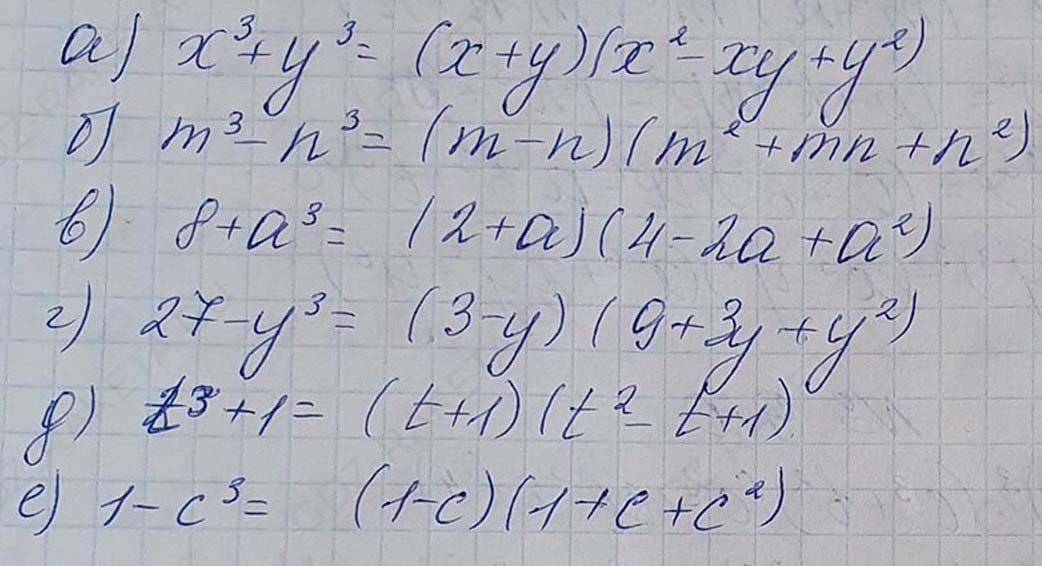 а) x³+y³= (x+y)(x²-xy+y²)
б) m³-n³= (m-n)(m²+mn+n²)
в) 8+a³= (2+a)(4-2a+a²)
г) 27-y³= (3-y)(9+3y+y²)
д) t³+1= (t+1)(t²-t+1)
е) 1-c³= (1-c)(1+c+c²)